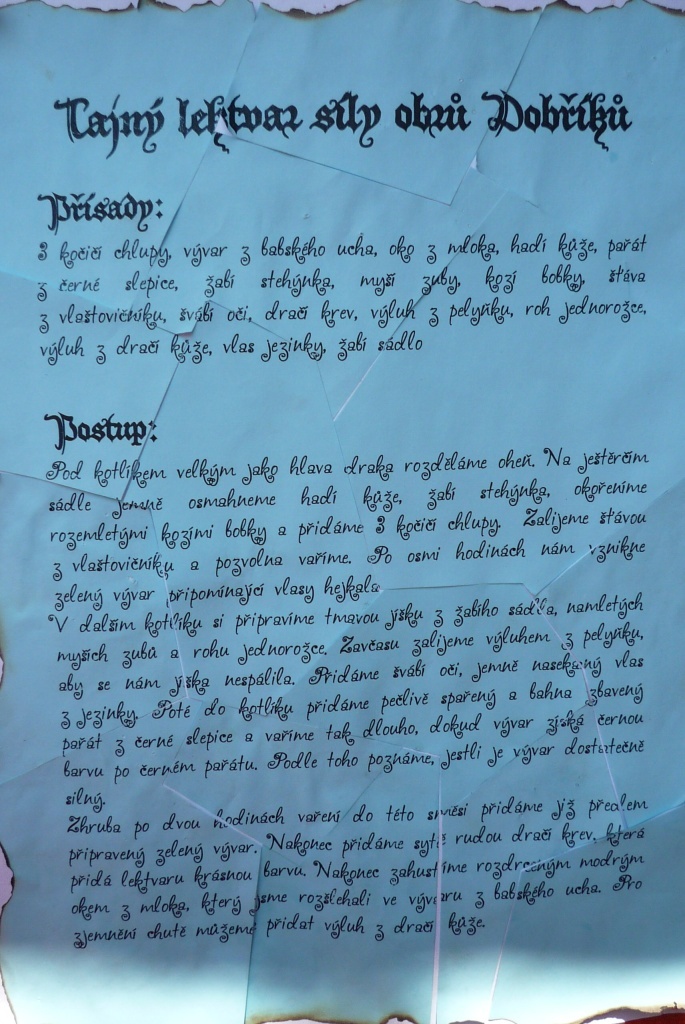 Tajný lektvar síly obrů Dobříků
Přísady:
3 kočičí chlupy, vývar z babského ucha, oko z mloka, hadí kůže, pařát
z černé slepice, žabí stehýnka, myší zuby, kozí bobky, šťáva
z vlaštovičníku, švábí oči, dračí krev, výluh z pelyňku, roh jednorožce,
výluh z dračí kůže, vlas jezinky, žabí sádlo
Postup:
Pod kotlíkem velkým jako hlava draka rozděláme oheň. Na ještěrčím
sádle jemně osmahneme hadí kůže, žabí stehýnka, okořeníme
rozemletými kozími bobky a přidáme 3 kočičí chlupy. Zalijeme šťávou
z vlaštovičníku a pozvolna vaříme. Po osmi hodinách nám vznikne
zelený vývar připomínající vlasy hejkala.
V dalším kotlíku si připravíme tmavou jíšku z žabího sádla, namletých
myších zubů a rohu jednorožce. Zavčasu zalijeme výluhem z pelyňku,
aby se nám jíška nespálila. Přidáme švábí oči, jemně nasekaný vlas
z jezinky. Poté do kotlíku přidáme pečlivě spařený a bahna zbavený
pařát z černé slepice a vaříme tak dlouho, dokud vývar získá černou
barvu po černém pařátu. Podle toho poznáme, jestli je vývar dostatečně
silný.
Zhruba po dvou hodinách vaření do této směsi přidáme již předem
připravený zelený vývar. Nakonec přidáme sytě rudou dračí krev, která
přidá lektvaru krásnou barvu. Nakonec zahustíme rozdrceným modrým
okem z mloka, který jsme rozšlehali ve vývaru z babského ucha. Pro
zjemnění chutě můžeme přidat výluh z dračí kůže.